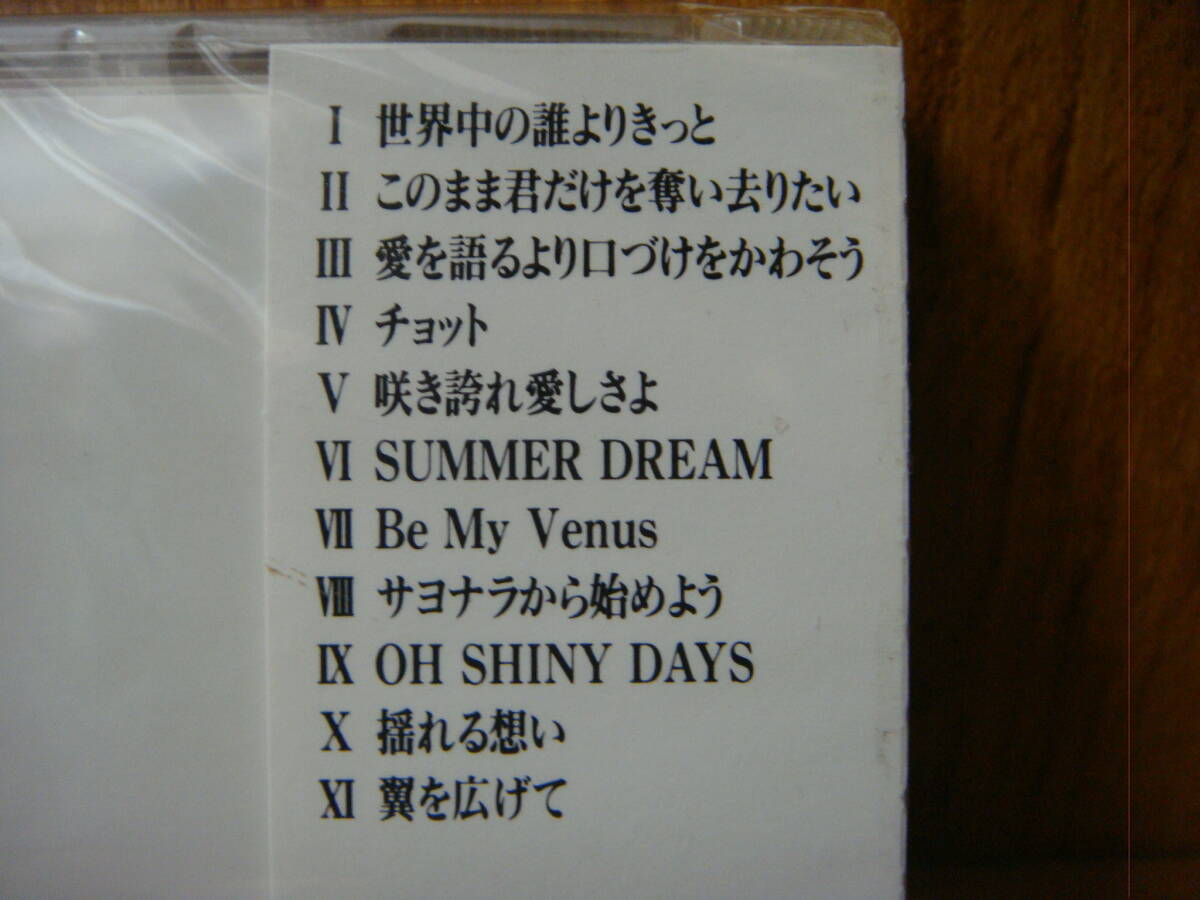 I 世界中の誰よりきっと
II このまま君だけを奪い去りたい
III 愛を語るより口づけをかわそう
IV チョット
V 咲き誇れ愛しさよ
VI SUMMER DREAM
VII Be My Venus
VIII サヨナラから始めよう
IX OH SHINY DAYS
X 揺れる想い
XI 翼を広げて